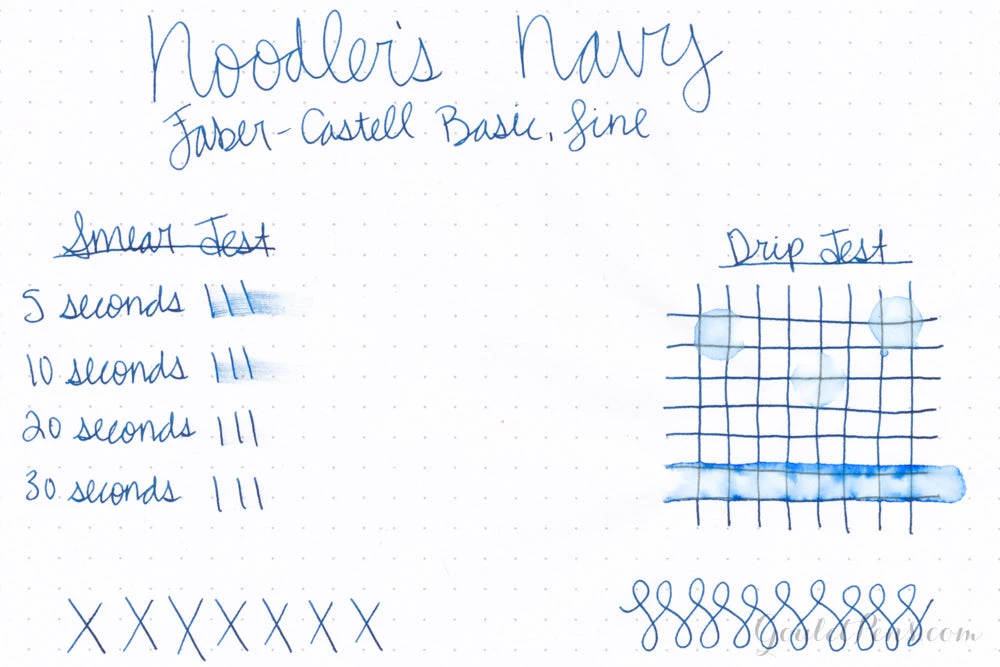 Noodler's Navy
Faber-Castell Basic, fine
Smear Test
5 seconds
10 seconds
20 seconds
30 seconds
Drip Test
X X X X X X X
GouletPens.com